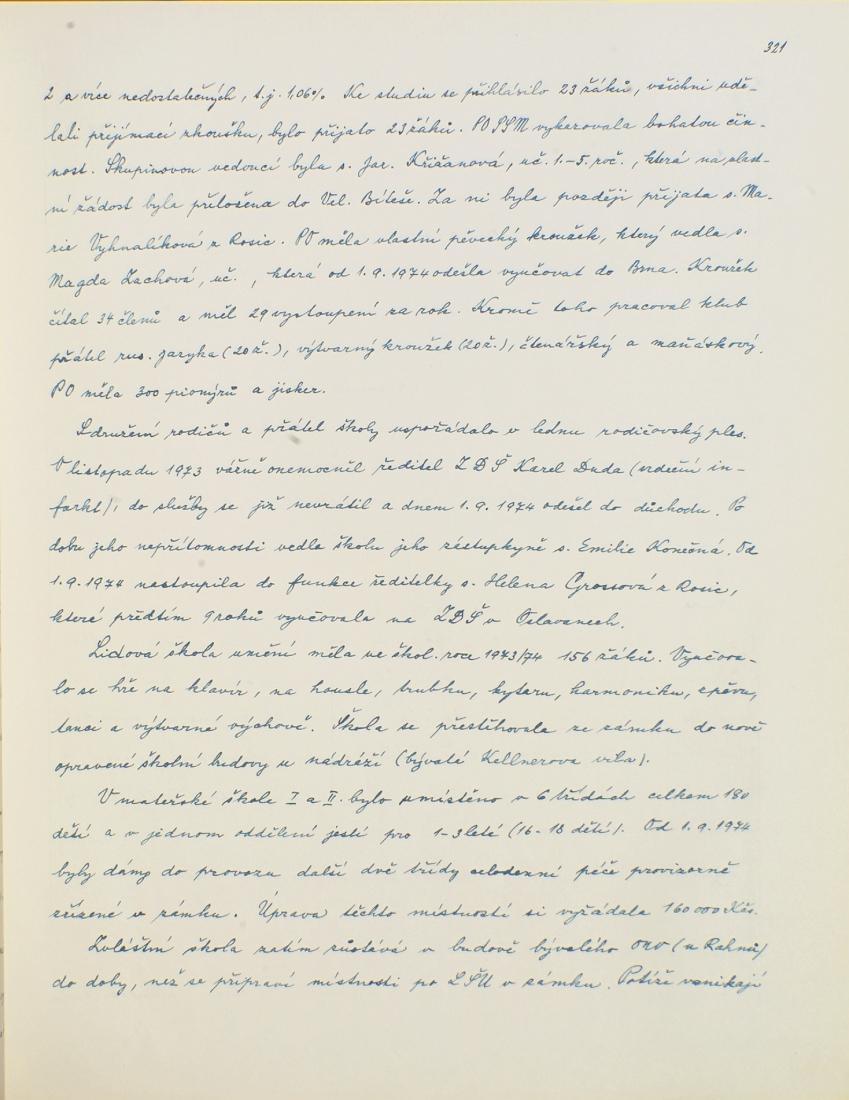 321
2 a více nedostatečných, t.j. 1,06% Ke studiu se přihlásilo 23 žáků, všichni udě-
lali přijímací zkoušku, bylo přijato 23 žáků. PO SSM vykazovala bohatou čin-
nost. Skupinovou vedoucí byla s. Jar. Křižanová, uč. 1.-5. roč., která na vlast-
ní žádost byla přeložena do Vel. Bíteše. Za ni byla později přijata s. Ma-
rie Vyhnalíková z Rosic. PO měla vlastní pěvecký kroužek, který vedla s.
Magda Zachová, uč. , která od 1.9.1974 odešla vyučovat do Brna. Kroužek
čítal 34 členů a měl 29 vystoupení za rok. Kromě toho pracoval klub
přátel rus. jazyka (20 ž.), výtvarný kroužek (20 ž.), čtenářský a maňáskový.
PO měla 300 pionýrů a jisker.
Sdružení rodičů a přátel školy uspořádalo v lednu rodičovský ples.
V listopadu 1973 vážně onemocněl ředitel ZDŠ Karel Duda (srdeční in-
farkt), do služby se již nevrátil a dnem 1.9.1974 odešel do důchodu. Po
dobu jeho nepřítomnosti vedla školu jeho zástupkyně s. Emilie Konečná. Od
1.9.1974 nastoupila do funkce ředitelky s. Helena Grossová z Rosic,
které předtím 9 roků vyučovala na ZDŠ v Oslavanech.
Lidová škola umění měla ve škol. roce 1973/74 156 žáků. Vyučova-
lo se hře na klavír, na housle, trubku, kytaru, harmoniku, zpěvu,
tanci a výtvarné výchově. Škola se přestěhovala ze zámku do nově
opravené školní budovy u nádraží (bývalá Kellnerova vila).
V mateřské škole I a II. bylo umístěno v 6 třídách celkem 180
dětí a v jednom oddělení jeslí pro 1-3leté (16-18 dětí). Od 1.9.1974
byly dány do provozu další dvě třídy celodenní péče provizorně
zřízené v zámku. Úprava těchto místností si vyžádala 160 000 Kčs.
Zvláštní škola zatím zůstává v budově bývalého ONV (u Rahnů)
do doby, než se připraví místnosti po LŠU v zámku. Potíže vznikají